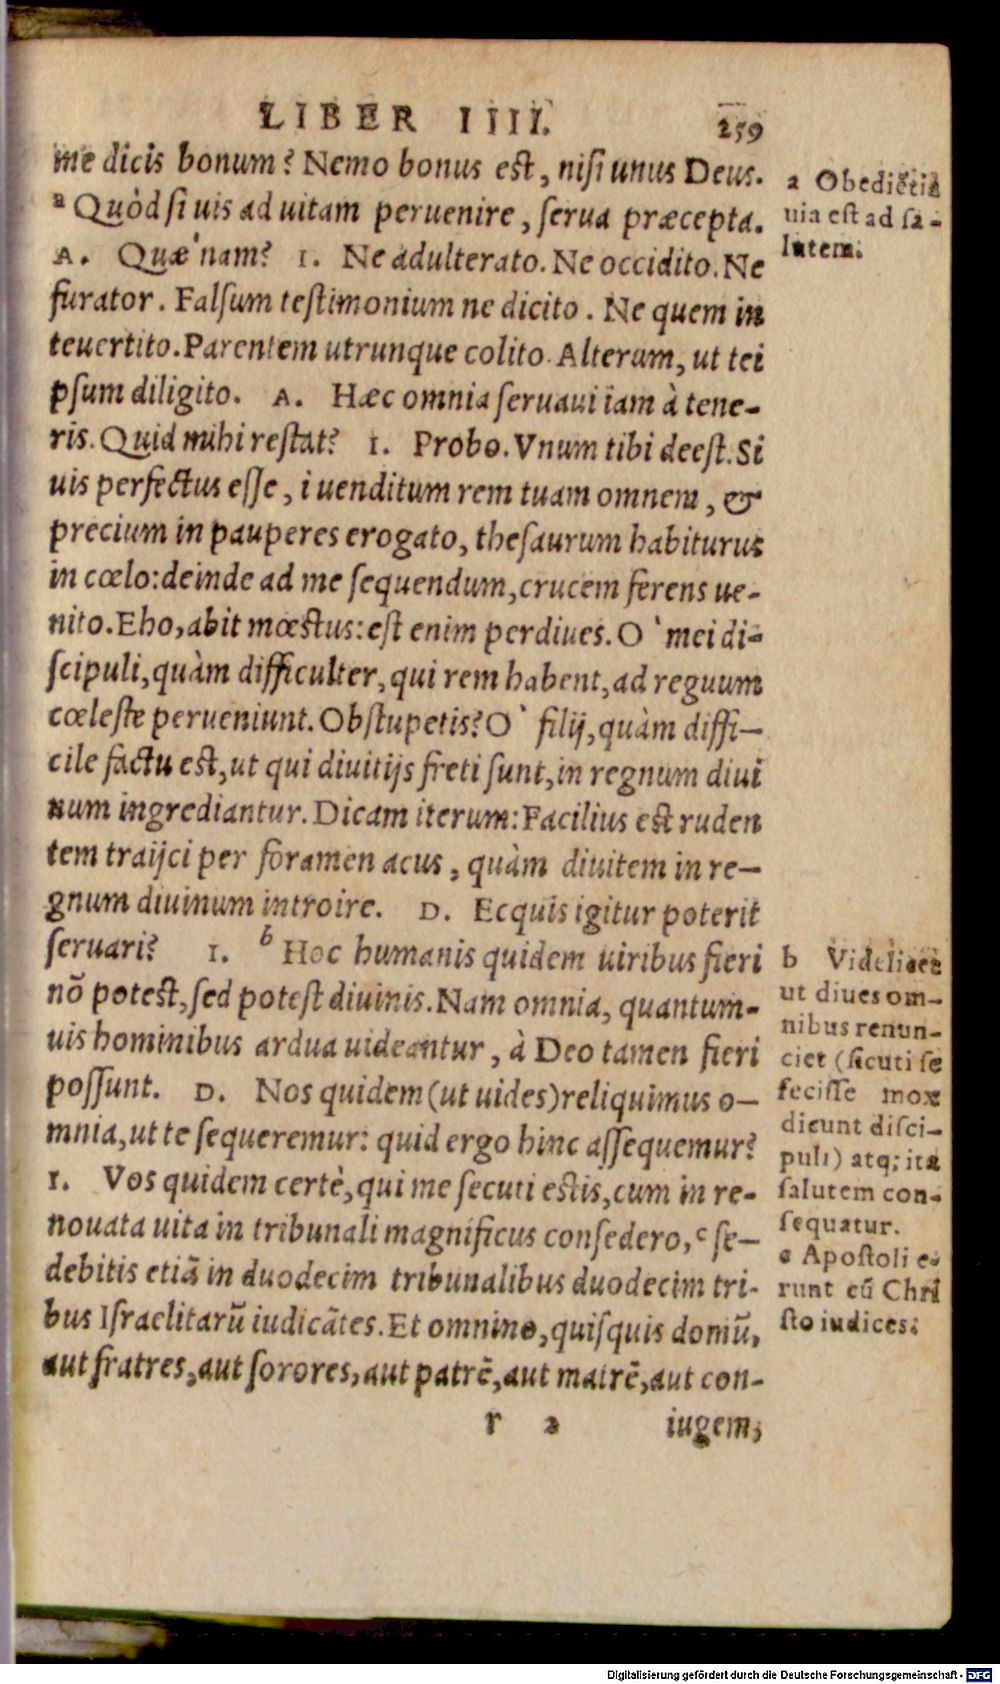 LIBER IIII. 259
me dicis bonum? Nemo bonus est, nisi unus Deus.
a Quòd si uis ad uitam peruenire, serua præcepta.
A. Quæ nam? I. Ne adulterato. Ne occidito. Ne
furator. Falsum testimonium ne dicito. Ne quem in
teuertito. Parentem utrunque colito. Alterum, ut tei
psum diligito. A. Hæc omnia seruaui iam à tene-
ris. Quid mihi restat? I. Probo. Vnum tibi deest. Si
uis perfectus esse, i uenditum rem tuam omnem, &
precium in pauperes erogato, thesaurum habiturus
in cœlo: deinde ad me sequendum, crucem ferens ue-
nito. Eho, abit mœstus: est enim perdiues. O` mei di-
scipuli, quàm difficulter, qui rem habent, ad reguum
cœleste perueniunt. Obstupetis? O` filij, quàm diffi-
cile factu est, ut qui diuitijs freti sunt, in regnum diui
num ingrediantur. Dicam iterum: Facilius est ruden
tem traijci per foramen acus, quàm diuitem in re-
gnum diuinum introire. D. Ecquis igitur poterit
seruari? I. b Hoc humanis quidem uiribus fieri
nõ potest, sed potest diuinis. Nam omnia, quantum-
uis hominibus ardua uideantur, à Deo tamen fieri
possunt. D. Nos quidem (ut uides) reliquimus o-
mnia, ut te sequeremur: quid ergo hinc assequemur?
I. Vos quidem certè, qui me secuti estis, cum in re-
nouata uita in tribunali magnificus consedero, c se-
debitis etiã in duodecim tribunalibus duodecim tri-
bus Israelitarũ iudicãtes. Et omnino, quisquis domũ,
aut fratres, aut sorores, aut patrẽ, aut matrẽ, aut con-
r 2 iugem,
a Obediẽtia
uia est ad sa-
lutem.
b Videlicet
ut diues om-
nibus renun-
ciet (sicuti se
fecisse mox
dicunt disci-
puli) atq; ita
salutem con-
sequatur.
c Apostoli e-
runt cũ Chri
sto iudices.
Digitalisierung gefördert durch die Deutsche Forschungsgemeinschaft - DFG